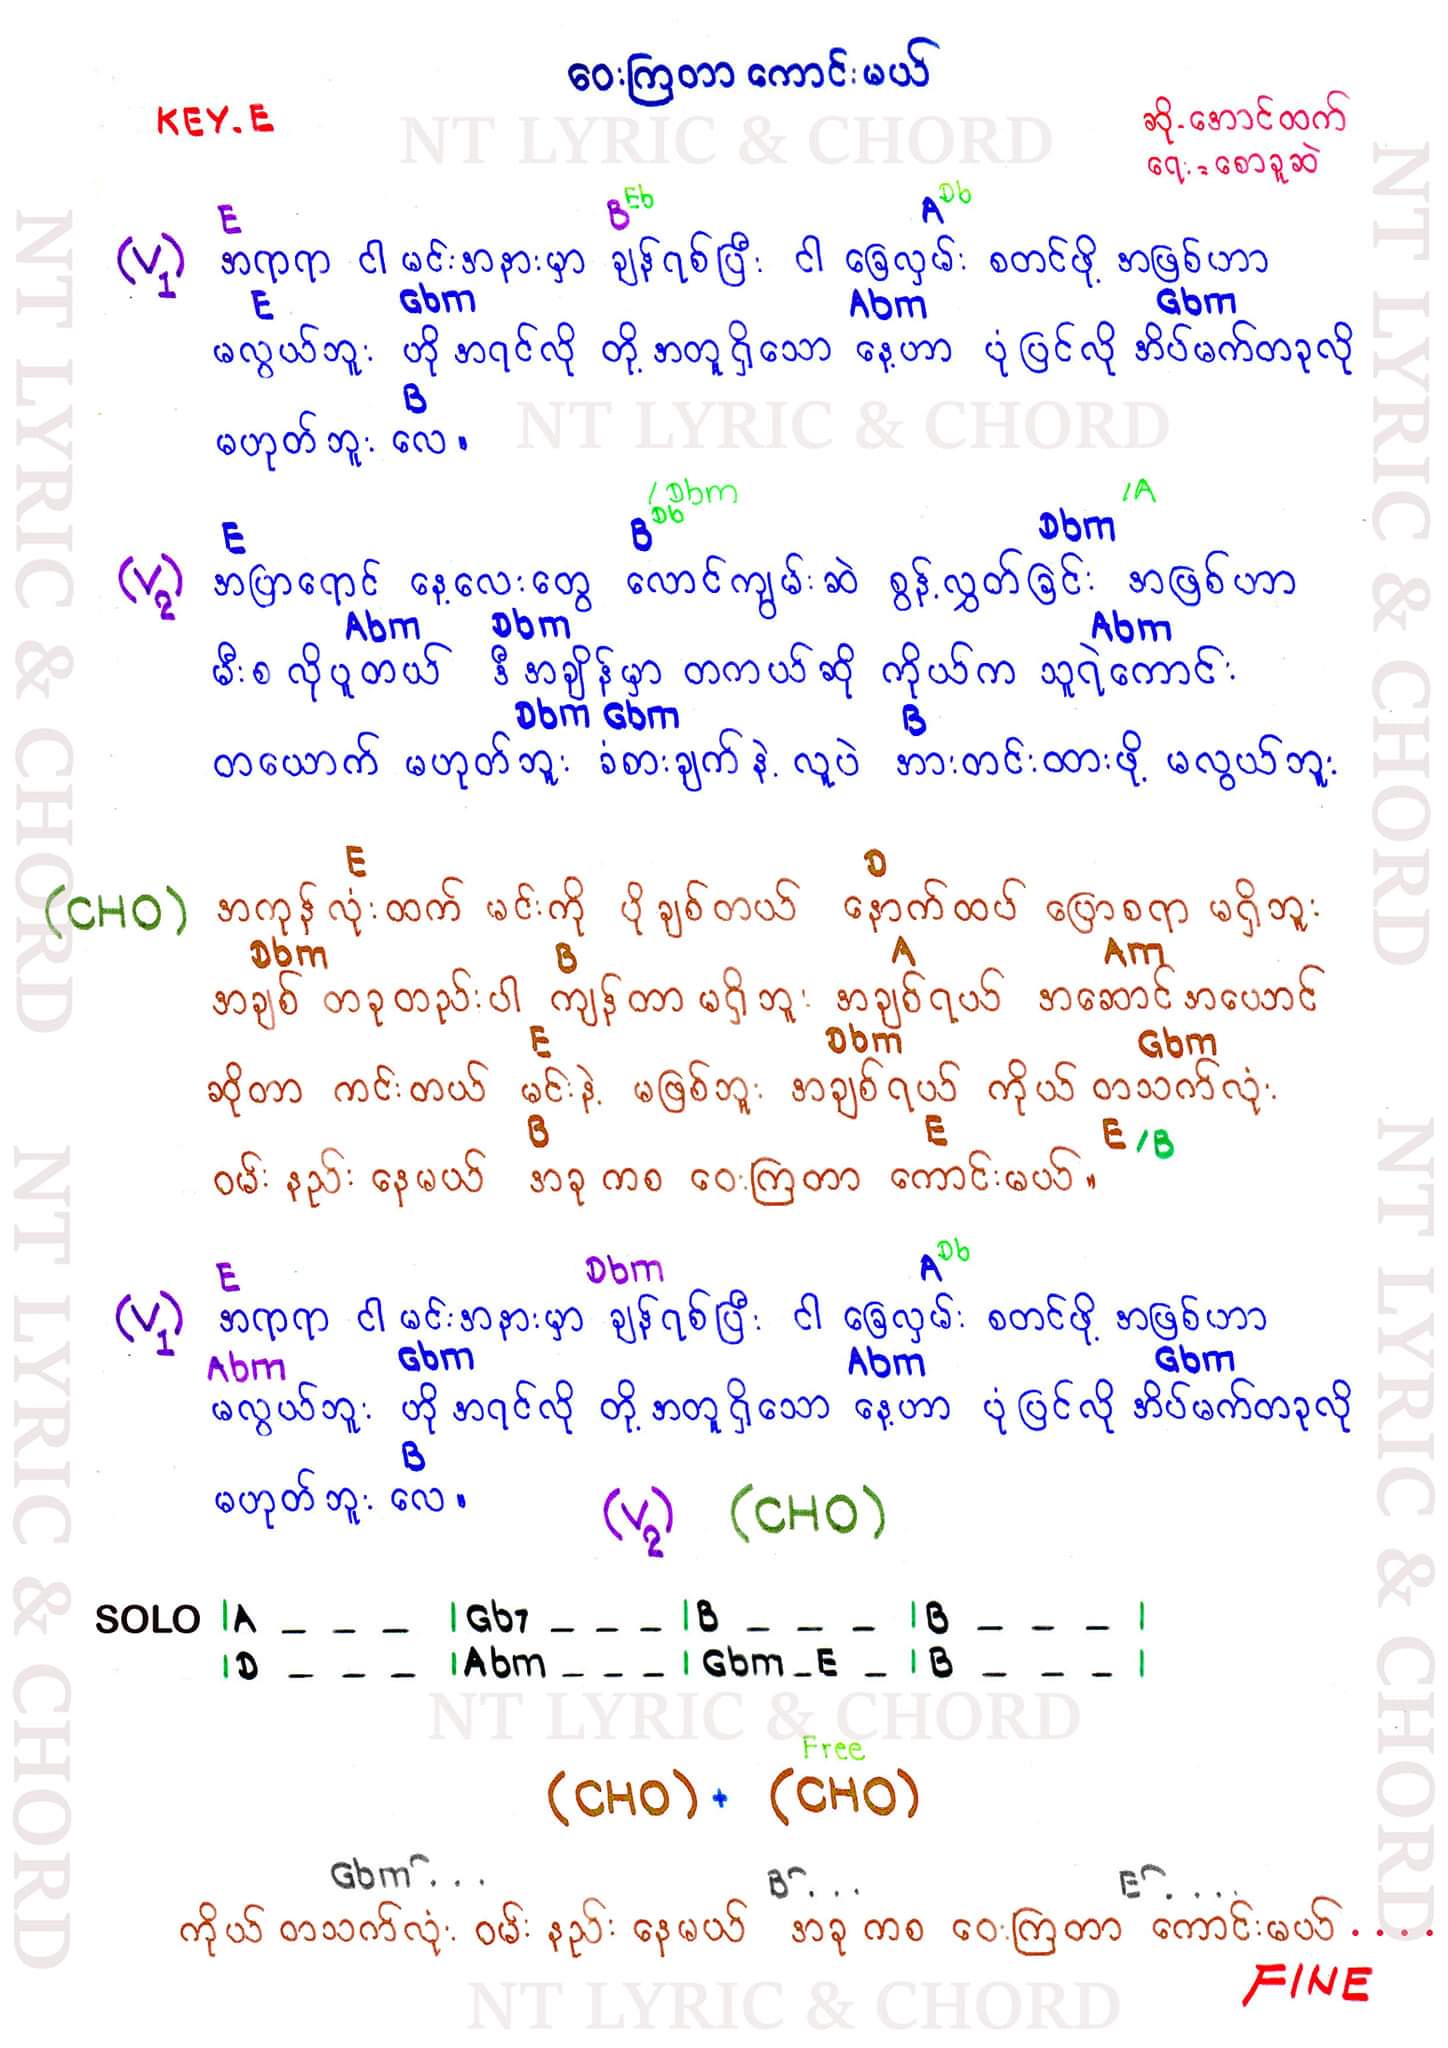 ဝေးကြတာ ကောင်းမယ်
KEY.E
NT LYRIC & CHORD
ဆို-အောင်ထက်
ရေး=စောခူဆဲ
E B Eb A Db
(V1) အရာရာ ငါ မင်းအနားမှာ ချန်ရစ်ပြီး ငါ ခြေလှမ်း စတင်ဖို့ အဖြစ်ဟာ
E Gbm Abm Gbm
မလွယ်ဘူး ဟို အရင်လို တို့ အတူရှိသော နေ့ဟာ ပုံပြင်လို အိပ်မက်တခုလို
B
မဟုတ်ဘူး လေ။
NT LYRIC & CHORD
E B Db /Dbm Dbm /A
(V2) အပြာရောင် နေ့လေးတွေ လောင်ကျွမ်းဆဲ စွန့်လွှတ်ခြင်း အဖြစ်ဟာ
Abm Dbm Abm
မီးစ လိုပူတယ် ဒီအချိန်မှာ တကယ်ဆို ကိုယ်က သူရဲကောင်း
Dbm Gbm B
တယောက် မဟုတ်ဘူး ခံစားချက်နဲ့ လူပဲ အားတင်းထားဖို့ မလွယ်ဘူး
E D
(CHO) အကုန်လုံးထက် မင်းကို ပိုချစ်တယ် နောက်ထပ် ပြောစရာ မရှိဘူး
Dbm B A Am
အချစ် တခုတည်းပါ ကျန်တာမရှိဘူး အချစ်ရယ် အဆောင်အယောင်
E Dbm Gbm
ဆိုတာ ကင်းတယ် မင်းနဲ့ မဖြစ်ဘူး အချစ်ရယ် ကိုယ် တသက်လုံး
B E E /B
ဝမ်းနည်း နေမယ် အခု ကစ ဝေးကြတာ ကောင်းမယ်။
E Dbm A Db
(V1) အရာရာ ငါ မင်းအနားမှာ ချန်ရစ်ပြီး ငါ ခြေလှမ်း စတင်ဖို့ အဖြစ်ဟာ
Abm Gbm Abm Gbm
မလွယ်ဘူး ဟို အရင်လို တို့ အတူရှိသော နေ့ဟာ ပုံပြင်လို အိပ်မက်တခုလို
B
မဟုတ်ဘူး လေ။ (V2) (CHO)
SOLO |A _ _ _ |Gb7 _ _ _ |B _ _ _ |B _ _ _ |
|D _ _ _ |Abm _ _ _ |Gbm _ E _ |B _ _ _ |
NT LYRIC & CHORD
Free
(CHO) + (CHO)
Gbm ... B ... E ....
ကိုယ် တသက်လုံး ဝမ်းနည်း နေမယ် အခု ကစ ဝေးကြတာ ကောင်းမယ် ....
FINE
NT LYRIC & CHORD
NT LYRIC & CHORD
NT LYRIC & CHORD
NT LYRIC & CHORD
NT LYRIC & CHORD